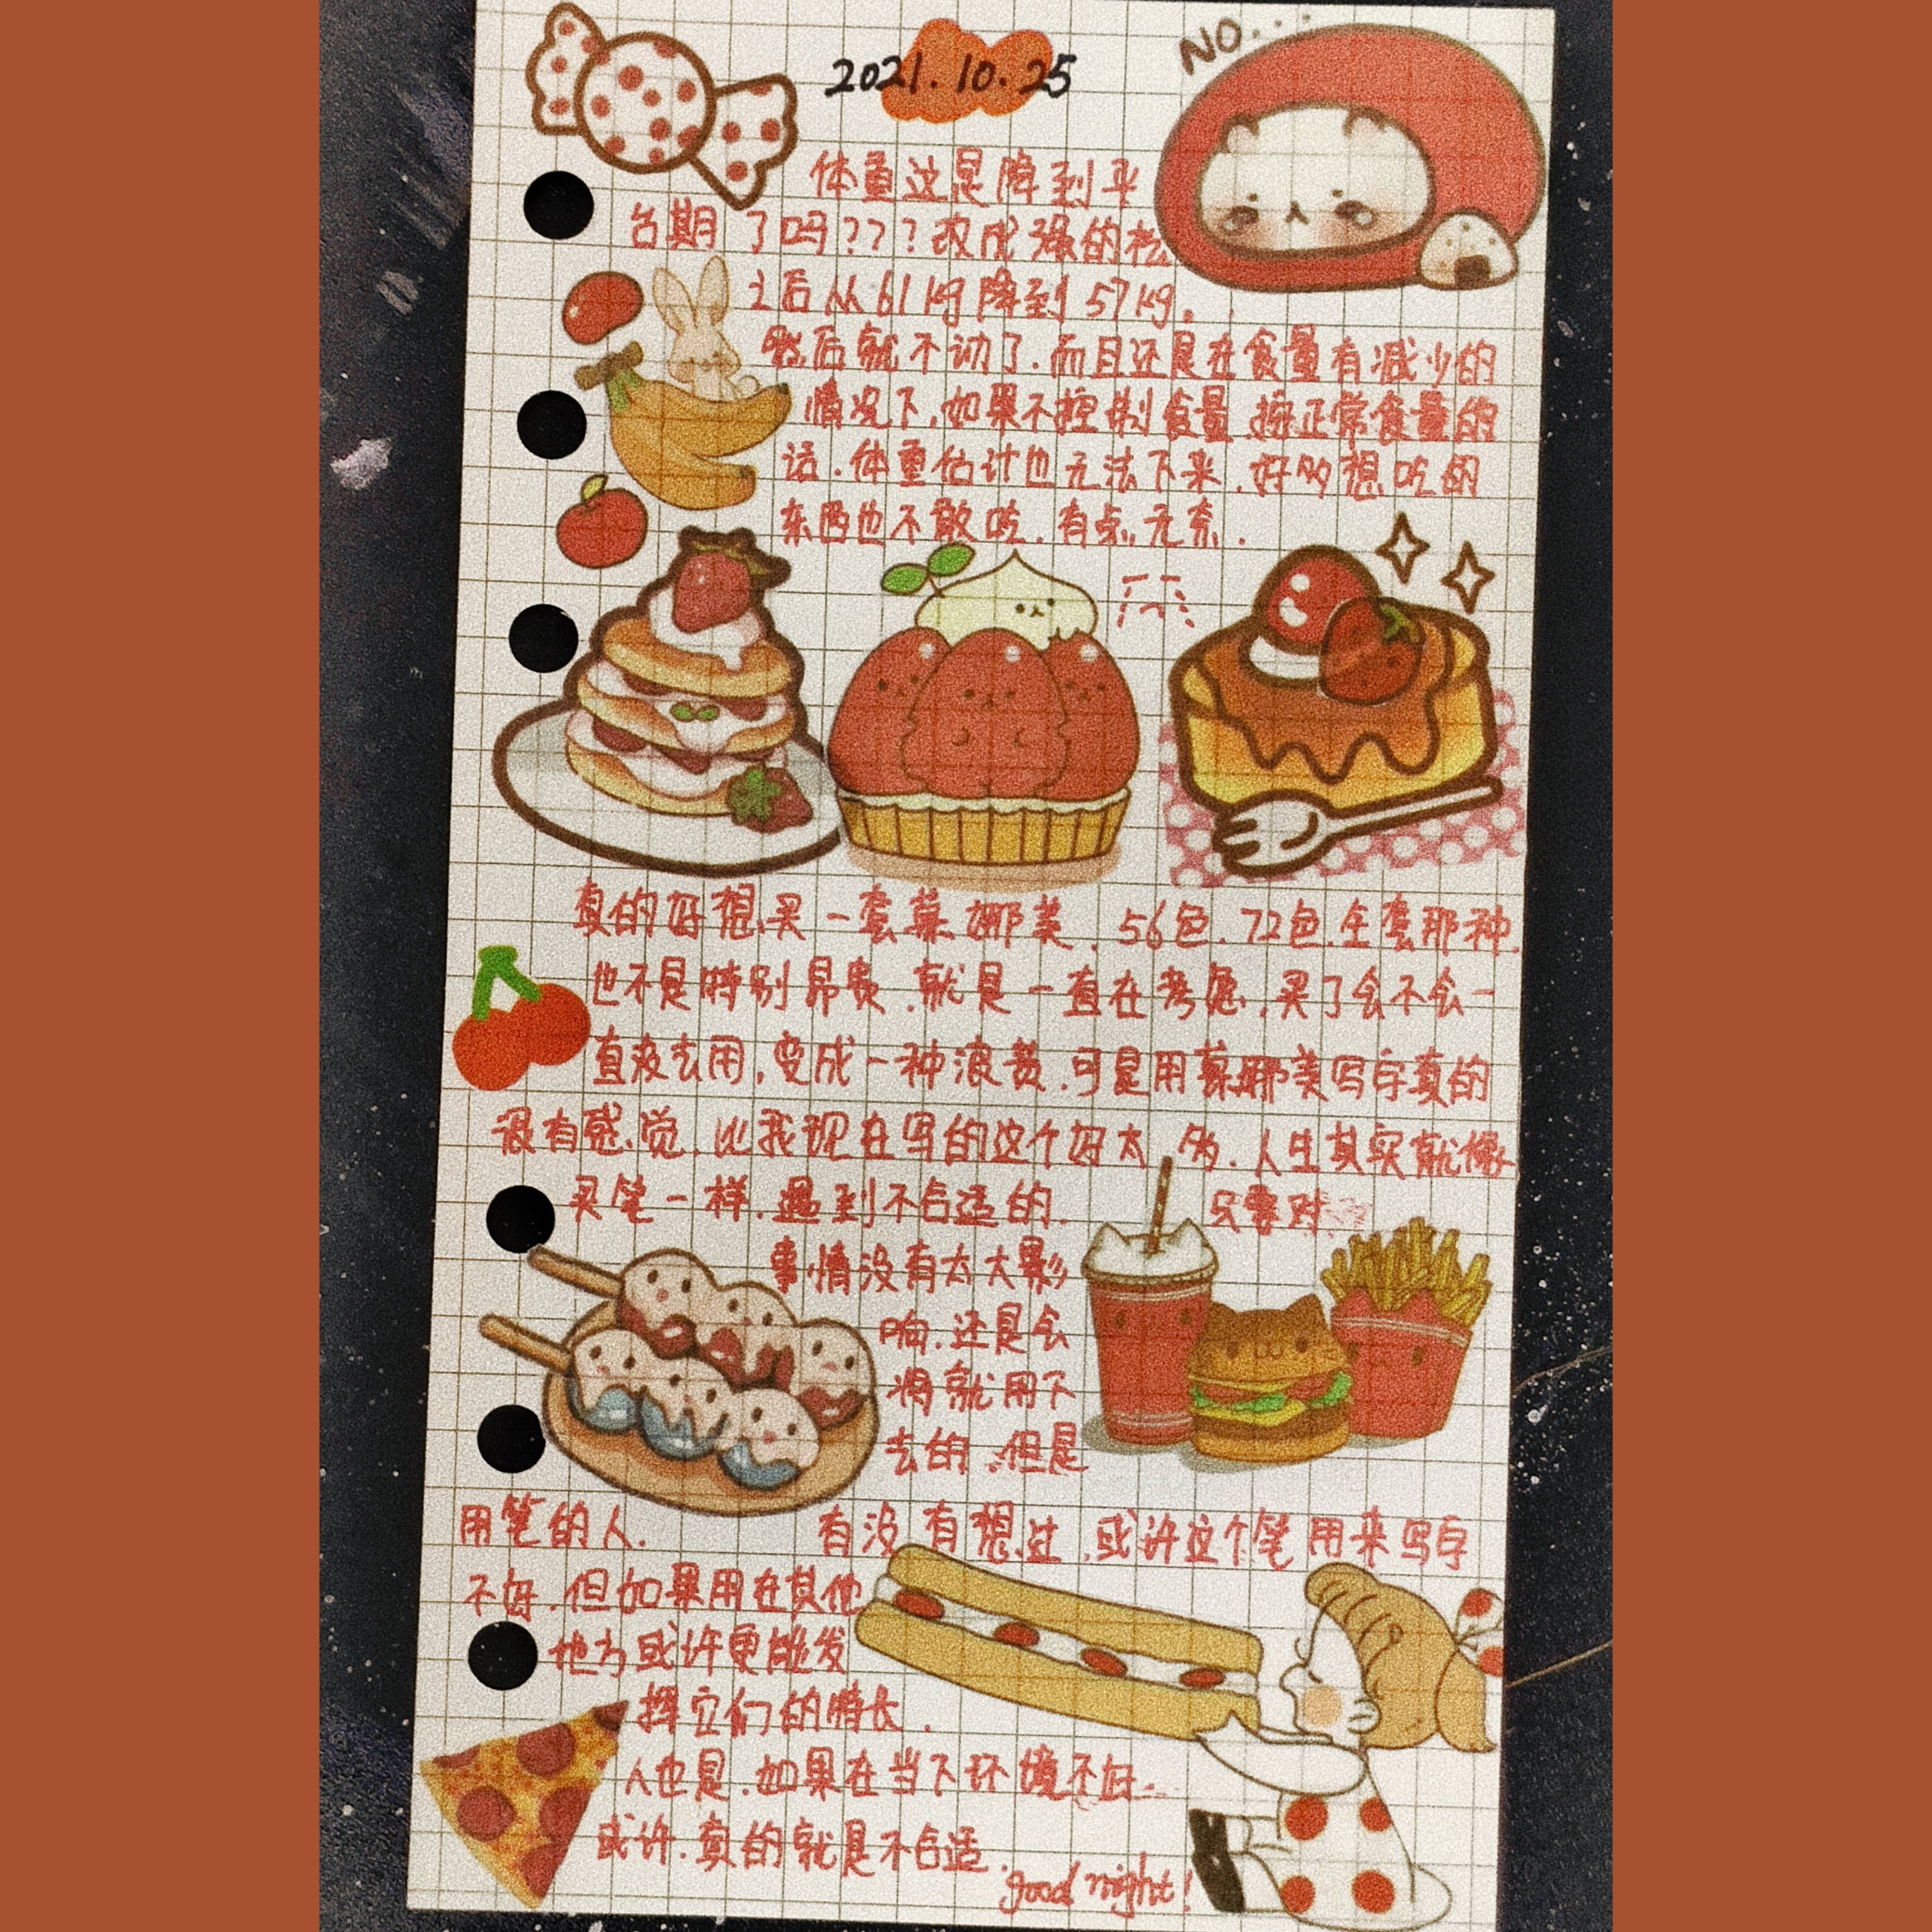 2021.10.25
NO...
体重这是降到平
台期了吗???改成强的松
之后从61kg降到57kg。
然后就不动了.而且还是在食量有减少的
情况下,如果不控制食量.按正常食量的
话.体重估计也无法下来.好多想吃的
东西也不敢吃.有点无奈.
真的好想买一套慕娜美.56色.72色.全套那种.
也不是特别昂贵.就是一直在考虑,买了会不会一
直没去用,变成一种浪费.可是用慕娜美写字真的
很有感觉.比我现在写的这个好太多.人生其实就像
买笔一样.遇到不合适的.只要对
事情没有太大影
响.还是会
将就用下
去的.但是
用笔的人.有没有想过.或许这个笔用来写字
不好.但如果用在其他
地方或许更能发
挥它们的特长.
人也是.如果在当下环境不好..
或许.真的就是不合适.
good night!